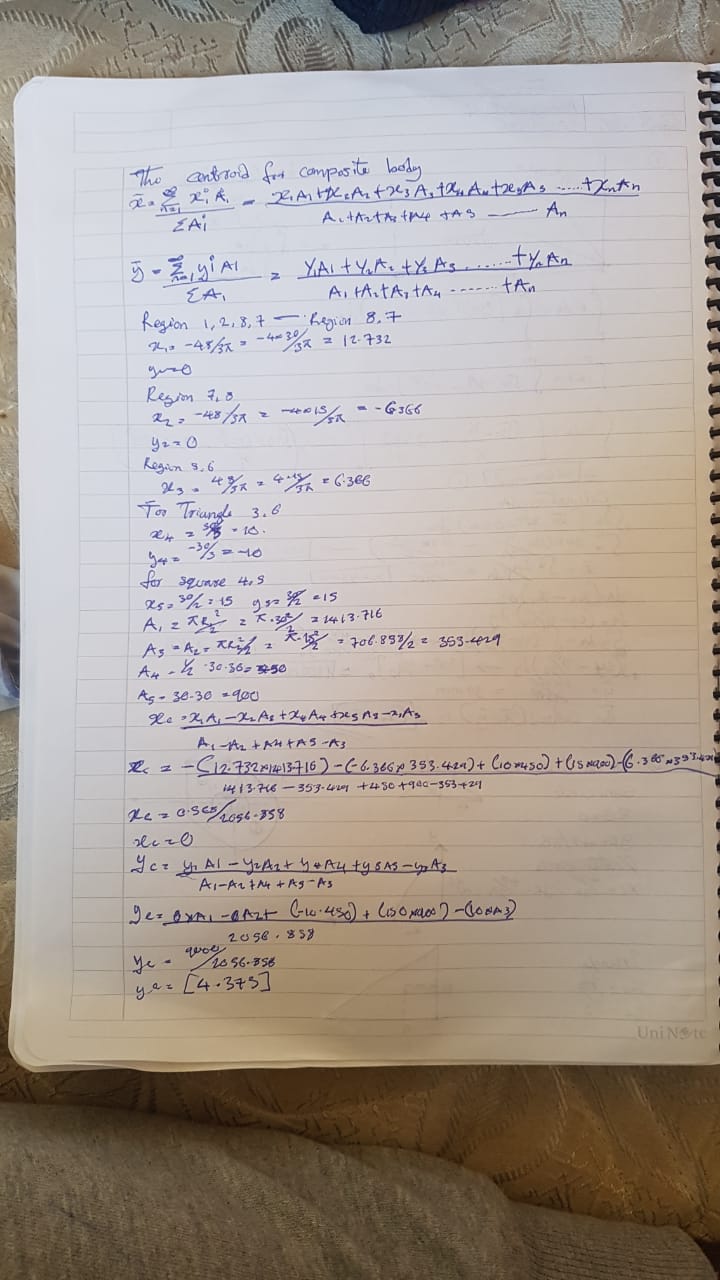 The centroid for composite body
x̄ = Σ xi Ai / ΣAi = x1A1+x2A2+x3A3+x4A4+x5A5 ......+xnAn / A1+A2+A3+A4+A5 —— An
ȳ = Σ yi A1 / ΣA1 = Y1A1+Y2A2+Y3A3.......+YnAn / A1+A2+A3+A4.......+An
Region 1,2,8,7 — Region 8,7
x1= -48/3π = -4×30/3π = 12.732
y1=0
Region 7,8
x2= -48/3π = -4×15/3π = -6366
y2=0
Region 5,6
x3= 48/3π = 4·15/3π = 6.366
For Triangle 3,6
x4 = 30/3 = 10.
y4= -30/3 = -10
for square 4,5
x5=30/2=15 y5=30/2=15
A1 = πR²/2 = π·30²/2 = 1413.716
A3=A2= πR²/2 = π·15²/2 = 706.858/2 = 353.429
A4 - 1/2 ·30·30=
A5- 30·30 =900
xc = x1A1-x2A2+x4A4+x5A5-x3A3
A1-A2+A4+A5-A3
xc = -(12.732×1413716)-(-6.366×353.429)+(10×450)+(15×900)-(6.366×353.429
1413.716-353.429+450+900-353+29
xc = 0.565/2056.858
xc=0
yc= y1A1-y2A2+y4A4+y5A5-y3A3
A1-A2+A4+A5-A3
yc= 0×A1-0A2+ (-10·450)+(150×900)-(30×A3)
2056.858
yc = 9000/2056.358
yc= [4.375]
UniNote